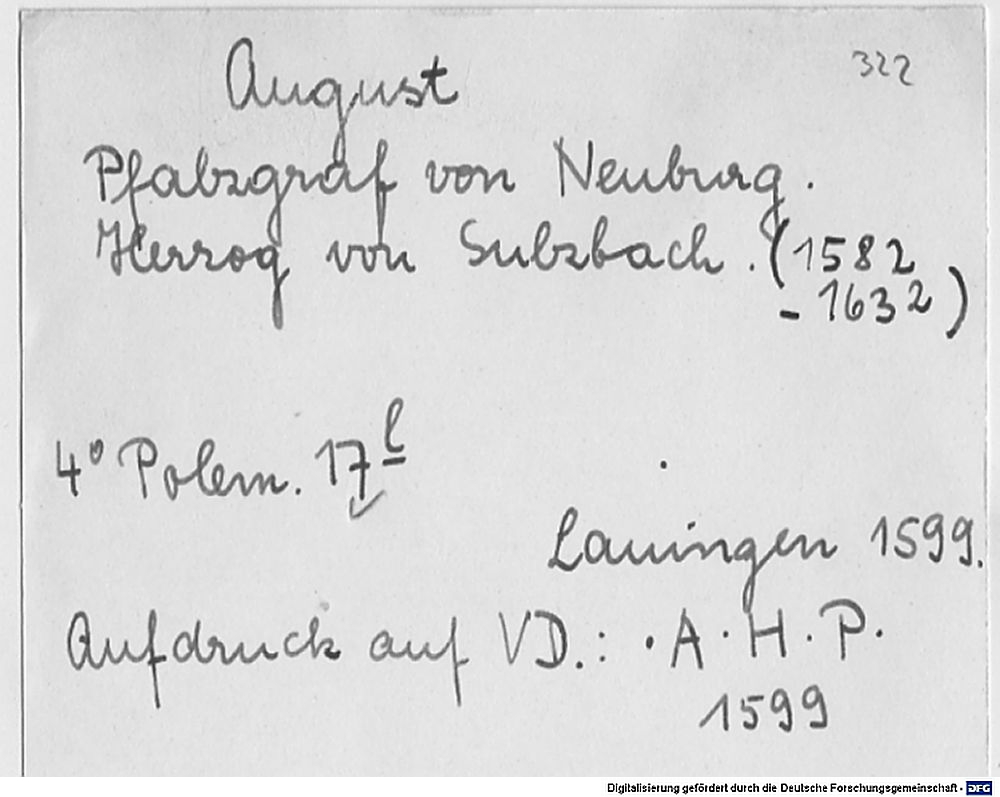 322
August
Pfalzgraf von Neuburg.
Herzog von Sulzbach. (1582
- 1632)
4° Polem. 17 l
Lauingen 1599.
Aufdruck auf VD.: · A · H · P.
1599
Digitalisierung gefördert durch die Deutsche Forschungsgemeinschaft - DFG